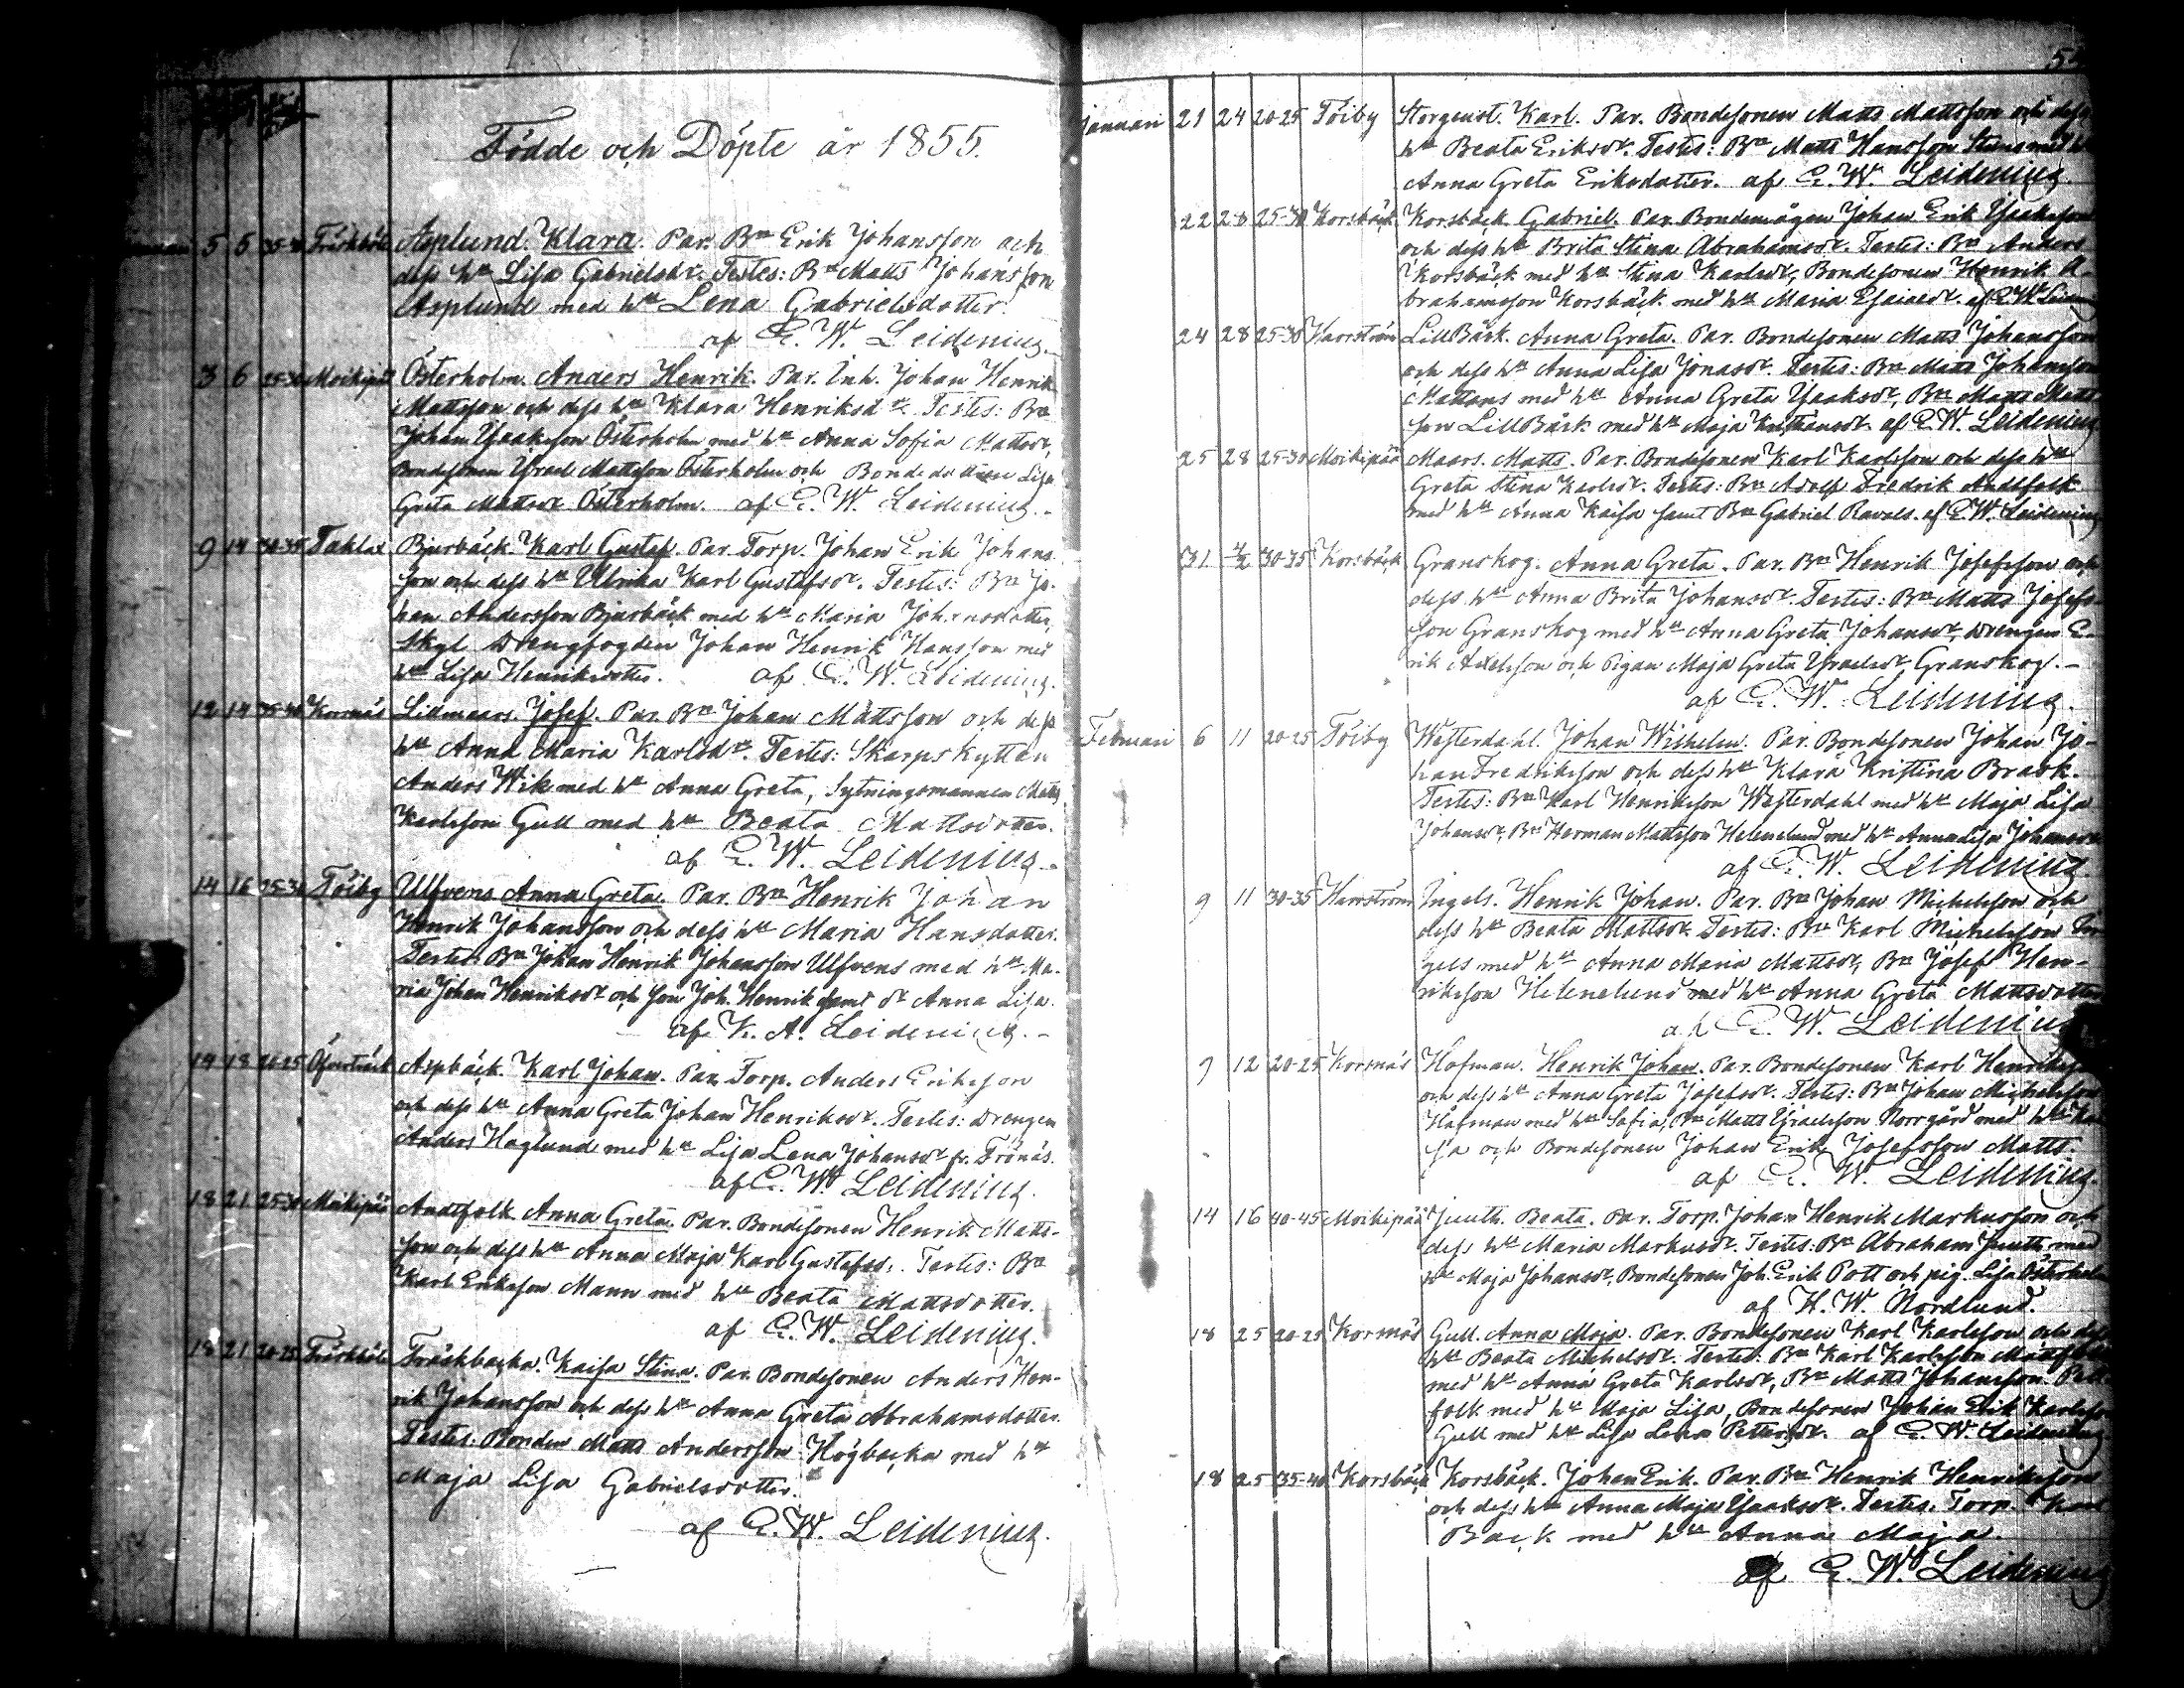 Födde och Döpte år 1855.
5 5 Träskböle Asplund. Klara. Par. Bn Erik Johansson och
dess h. Lisa Gabrielsdr. Testes: Bn Matts Johansson
Asplund med h. Lena Gabrielsdotter.
af E. W. Leidenius.
3 6 25-30 Moikipää Österholm. Anders Henrik. Par. Inh. Johan Henrik
Mattsson och dess h. Klara Henriksdr. Testes: Bn
Johan Isaksson Österholm med h. Anna Sofia Mattsdr,
Bondesonen Israel Mattsson Österholm och Bondedottren Lisa
Greta Mattsdr Österholm. af E. W. Leidenius.
9 14 30-35 Taklax Bjurbäck. Karl Gustaf. Par. Torp. Johan Erik Johans-
son och dess h. Ulrika Karl Gustafsdr. Testes: Bn Jo-
han Andersson Bjurbäck med h. Maria Johansdotter,
Drengfogden Johan Henrik Hansson med
h. Lisa Henriksdotter. af E. W. Leidenius.
12 14 35-40 Korsnäs Lidmaars. Josef. Par. Bn Johan Mattsson och dess
h. Anna Maria Karlsdr. Testes: Skarpskytten
Anders Wik med h. Anna Greta, Sytningsmannen Matts
Karlsson Gull med h. Beata Mattsdotter.
af E. W. Leidenius.
14 16 25-30 Töiby Ulfvens Anna Greta. Par. Bn Henrik Johan
Henrik Johansson och dess h. Maria Hansdotter.
Testes: Bn Johan Henrik Johansson Ulfvens med h. Ma-
ria Johan Henriksdr och son Joh. Henrik samt dr Anna Lisa.
af K. A. Leidenius.
14 18 20-25 Öfverträsk Aspbäck. Karl Johan. Par. Torp. Anders Eriksson
och dess h. Anna Greta Johan Henriksdr. Testes: Drengen
Anders Haglund med h. Lisa Lena Johansdr fr. Trönäs.
af E. W. Leidenius.
18 21 25-30 Moikipää Andtfolk Anna Greta. Par. Bondesonen Henrik Matts-
son och dess h. Anna Maja Karl Gustafsd. Testes: Bn
Karl Eriksson Mann med h. Beata Mattsdotter.
af E. W. Leidenius.
18 21 20-25 Träskböle Träskbacka. Kaisa Stina. Par. Bondesonen Anders Hen-
rik Johansson och dess h. Anna Greta Abrahamsdotter.
Testes: Bonden Matts Andersson Högbacka med h.
Maja Lisa Gabrielsdotter.
af E. W. Leidenius.
Januari 21 24 20-25 Töiby Storquist. Karl. Par. Bondesonen Matts Mattsson och dess
h. Beata Eriksdr. Testes: Bn Matts Hansson Stens med h
Anna Greta Eriksdotter. af E. W. Leidenius.
22 28 25-30 Korsbäck Korsbäck. Gabriel. Par. Bondemågen Johan Erik Isaksson
och dess h. Brita Stina Abrahamsdr. Testes: Bn Anders
Korsbäck med h. Stina Karlsdr, Bondesonen Henrik A-
brahamsson Korsbäck med h. Maria Esaiaedr. af E. W. Leiden
24 28 25-30 Harrström LillBäck. Anna Greta. Par. Bondesonen Matts Johansson
och dess h. Anna Lisa Jonasdr. Testes: Bn Matts Johansson
Mattans med h. Anna Greta Isaksdr, Bn Matts Matts-
son LillBäck med h. Maja af E. W. Leidenius
25 28 25-30 Moikipää Maars. Matts. Par. Bondesonen Karl Karlsson och dess h.
Greta Stina Karlsdr. Testes: Bn Adolf Fredrik Andtfolk
med h. Anna Kaisa samt Bn Gabriel Ravals. af E. W. Leidenius
31 2/2 30-35 Korsbäck Granskog. Anna Greta. Par. Bn Henrik Josefsson och
dess h. Anna Brita Johansdr. Testes: Bn Matts Josefs-
son Granskog med h. Anna Greta Johansdr, Drengen E-
rik Axelsson och Pigan Maja Greta Israelsdr Granskog.
af E. W. Leidenius.
Februari 6 11 20-25 Töiby Westerdahl. Johan Wilhelm. Par. Bondesonen Johan Jo-
han Fredriksson och dess h. Klara Kristina Brask.
Testes: Bn Karl Henriksson Westerdahl med h. Maja Lisa
Johansdr, Bn Herman Mattsson Helenelund med h. Anna Lisa Johansdr
af E. W. Leidenius.
9 11 30-35 Harrström Ingels. Henrik Johan. Par. Bn Johan Michelsson och
dess h. Beata Mattsdr. Testes: Bn Karl Michelsson In-
gels med h. Anna Maria Mattsdr, Bn Josef Hen-
riksson Helenelund med h. Anna Greta Mattsdotter
af E. W. Leidenius
9 12 20-25 Korsnäs Hofman. Henrik Johan. Par. Bondesonen Karl Henriksson
och dess h. Anna Greta Josefsdr. Testes: Bn Johan Michelsson
Hofman med h. Sofia, Bn Matts Israelsson Norrgård med h. Kai-
sa och Bondesonen Johan Erik Josefsson Matts.
af E. W. Leidenius.
14 16 40-45 Moikipää Juuth. Beata. Par. Torp. Johan Henrik Markusson och
dess h. Maria Markusdr. Testes: Bn Abraham Juuth med
h. Maja Johansdr, Bondesonen Joh. Erik Pott och pig. Lisa Österholm
af H. W. Nordlund.
18 25 20-25 Korsnäs Gull. Anna Maja. Par. Bondesonen Karl Karlsson och dess
h. Beata Michelsdr. Testes: Bn Karl Karlsson
med h. Anna Greta Karlsdr, Bn Matts Johansson
folk med h. Maja Lisa, Bondesonen Johan Erik Karlsson
Gull med h. Lisa Lena Pettersdr. af E. W. Leidenius
18 25 35-40 Korsbäck Korsbäck. Johan Erik. Par. Bn Henrik Henriksson
och dess h. Anna Maja Isaksdr. Testes. Torp. Karl
Back med h. Anna Maja.
af E. W. Leidenius